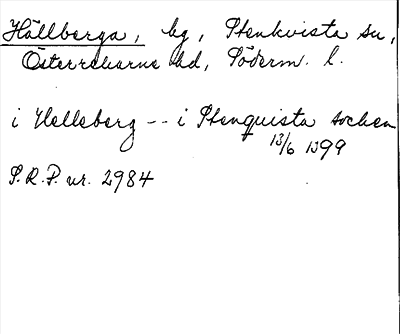 Hällberga, by, Stenkvista sn,
Österrekarne hd, Söderm. l.
i Helleberg -- i Stenquista socken
13/6 1399
S.R.P. nr. 2984